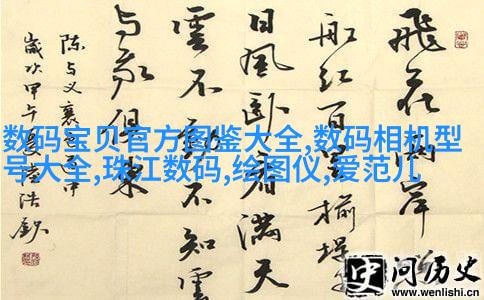 飛花兩岸
船紅百里榆堤
日風臥看滿天
雲不動不知雲
与我俱東
陈与义襄邑道中
歲次甲午夏
数码宝贝官方图鉴大全,数码相机型
号大全,珠江数码,绘图仪,爱范儿
史问历史
www.wenlishi.cn